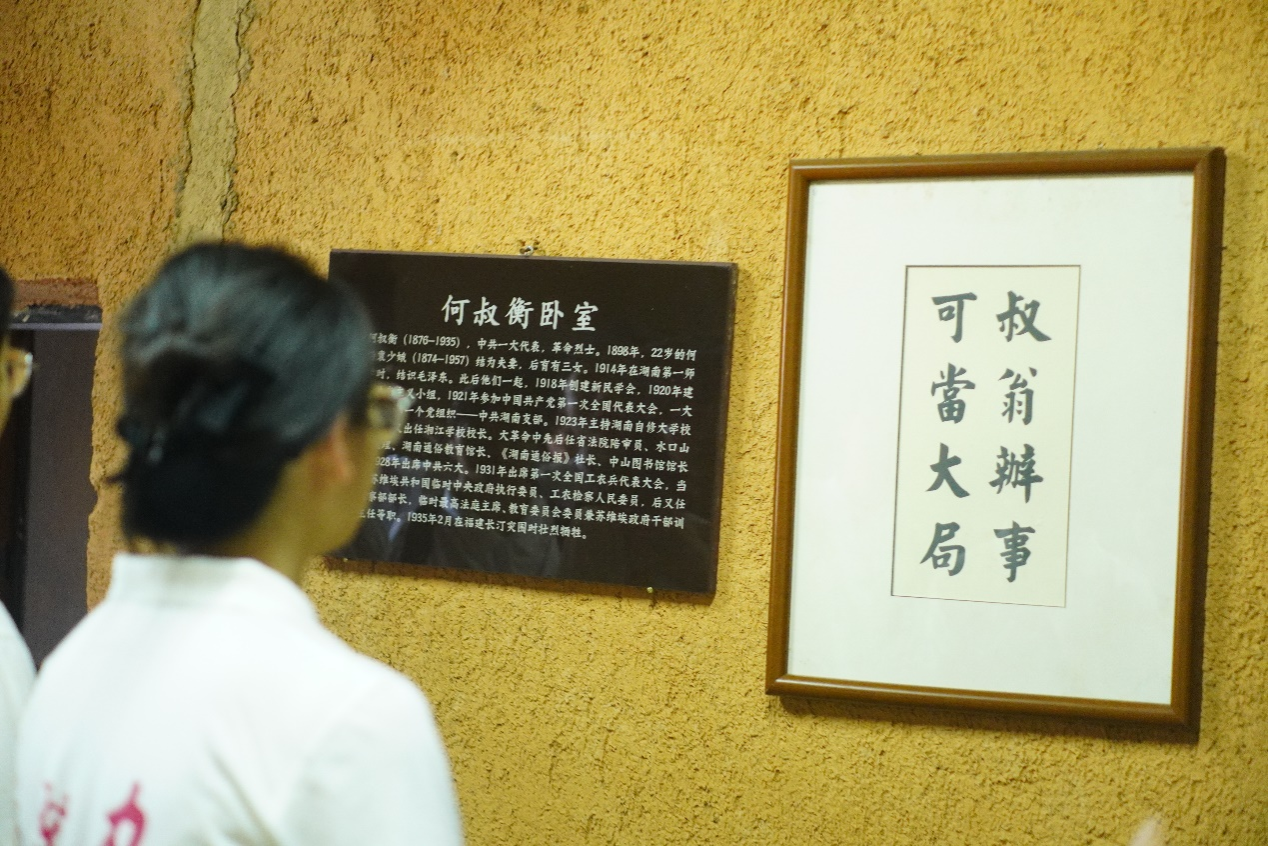 何叔衡卧室
何叔衡（1876—1935），中共一大代表，革命烈士。1898年，22岁的何
袁少娥（1874—1957）结为夫妻，后育有三女。1914年在湖南第一师
时，结识毛泽东。此后他们一起，1918年创建新民学会，1920年建
义小组，1921年参加中国共产党第一次全国代表大会，一大
一个党组织——中共湖南支部。1923年主持湖南自修大学校
又出任湘江学校校长。大革命中先后任省法院陪审员、水口山
、湖南通俗教育馆长、《湖南通俗报》社长、中山图书馆馆长
28年出席中共六大。1931年出席第一次全国工农兵代表大会，当
苏维埃共和国临时中央政府执行委员、工农检察人民委员，后又任
部部长，临时最高法庭主席，教育委员会委员兼苏维埃政府干部训
主任等职。1935年2月在福建长汀突围时壮烈牺牲。
叔翁辦事
可當大局